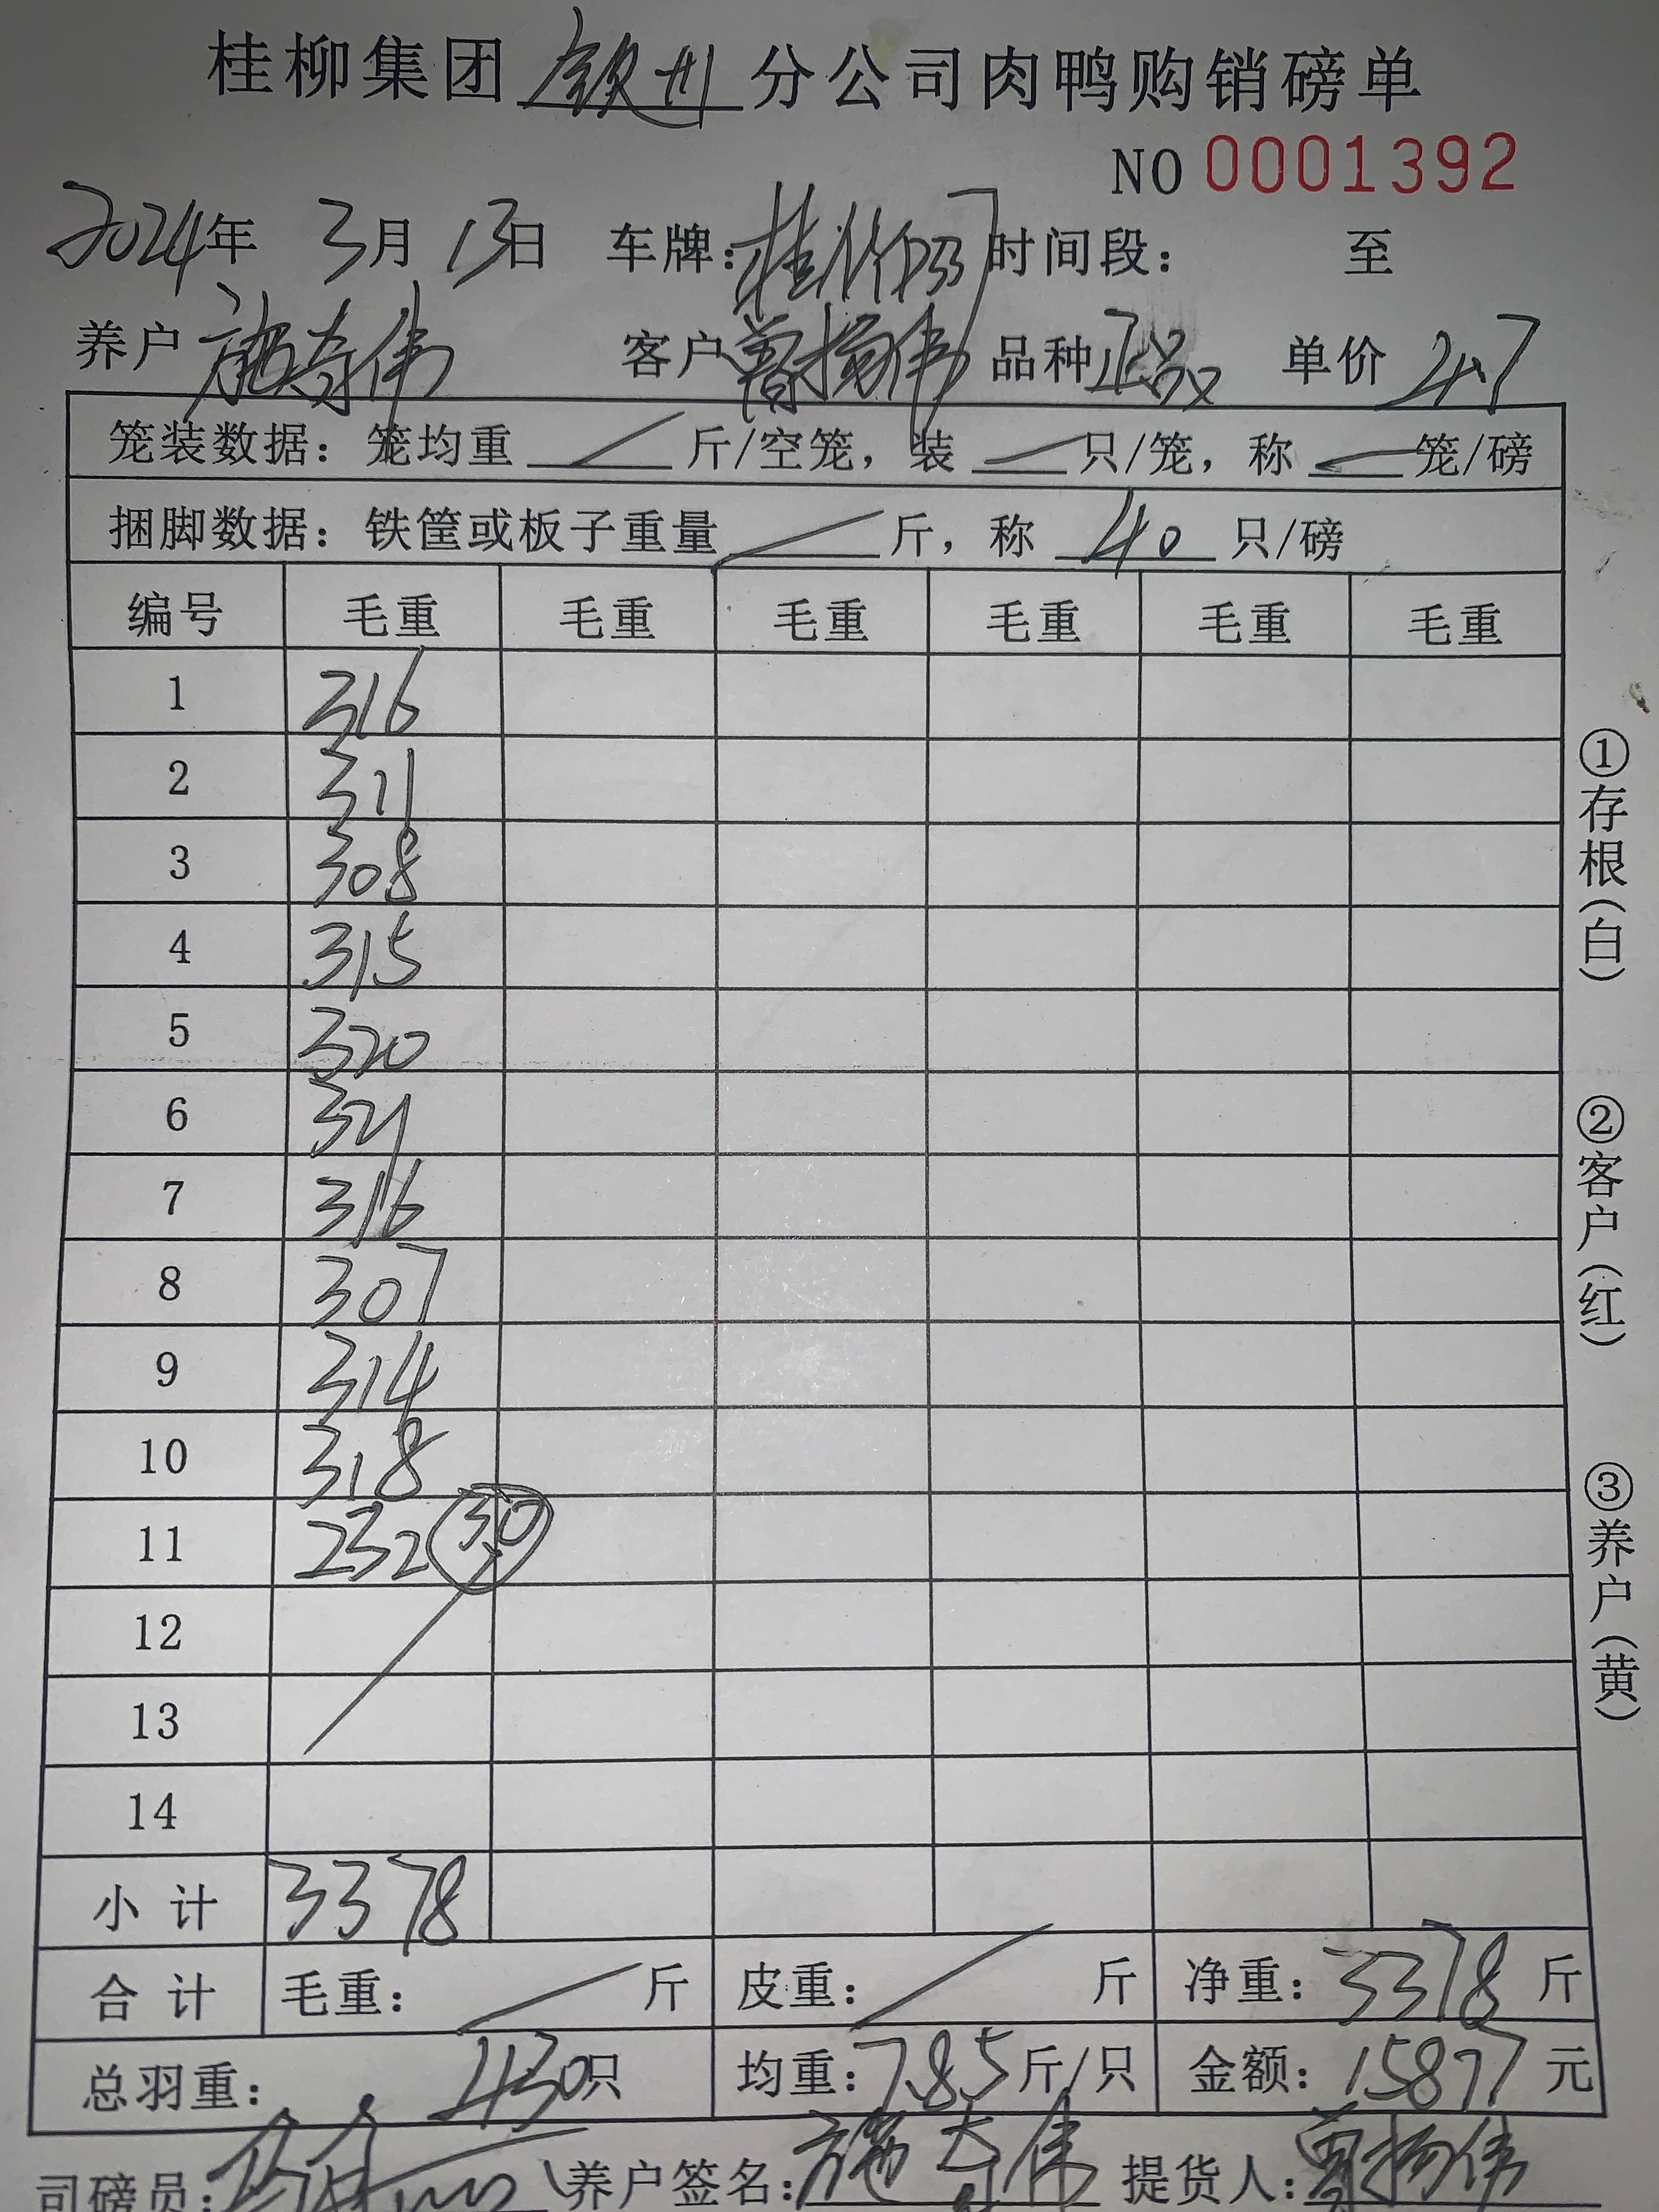 桂柳集团 钦州 分公司肉鸭购销磅单
NO 0001392
2024年 3月 13日 车牌: 时间段: 至
养户 施寿伟 客户 曾扬伟 品种 正品 单价 4.7
笼装数据: 笼均重 / 斤/空笼, 装 / 只/笼, 称 / 笼/磅
捆脚数据: 铁筐或板子重量 / 斤, 称 40 只/磅
编号 毛重 毛重 毛重 毛重 毛重 毛重
1 316
2 311
3 308
4 315
5 320
6 321
7 316
8 307
9 314
10 318
11 232 30
12
13
14
小计 3378
合计 毛重: / 斤 皮重: / 斤 净重: 3378 斤
总羽重: 430只 均重: 7.85斤/只 金额: 15877元
司磅员: 养户签名: 施寿伟 提货人: 曾扬伟
①存根(白)
②客户(红)
③养户(黄)